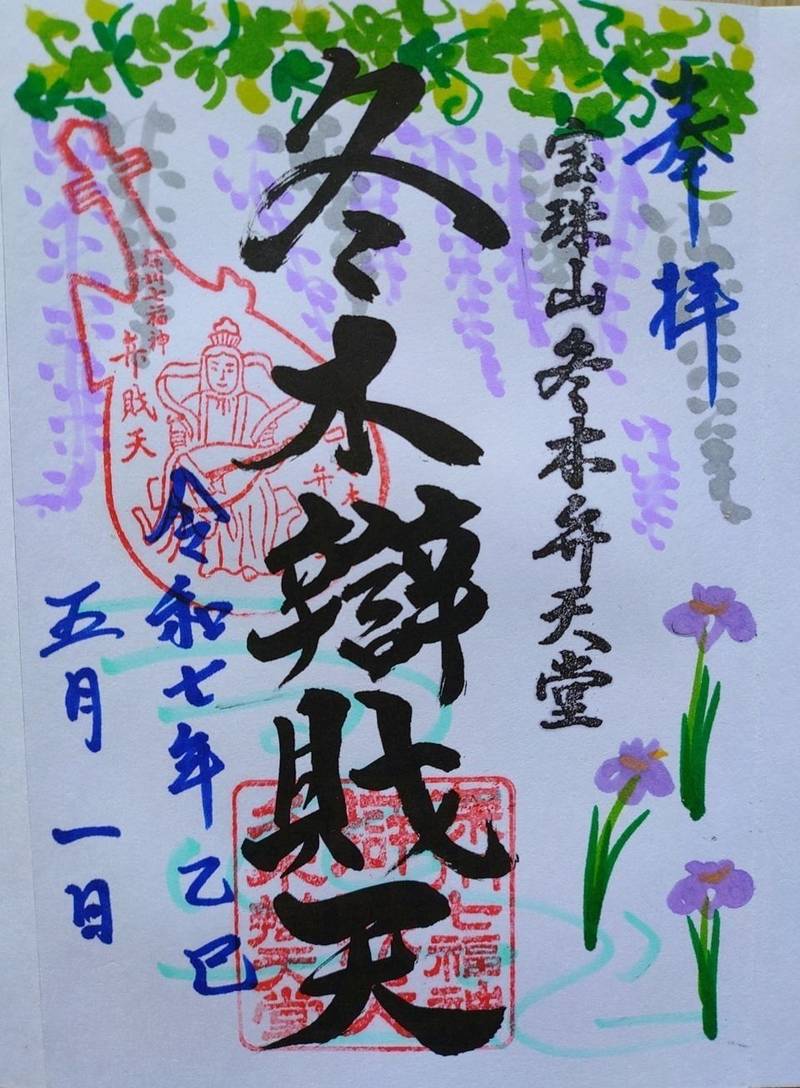 奉拝
宝珠山冬木弁天堂
冬木辯財天
深川七福神
弁財天
令和七年乙巳
五月一日
深川七福神
冬木弁天堂